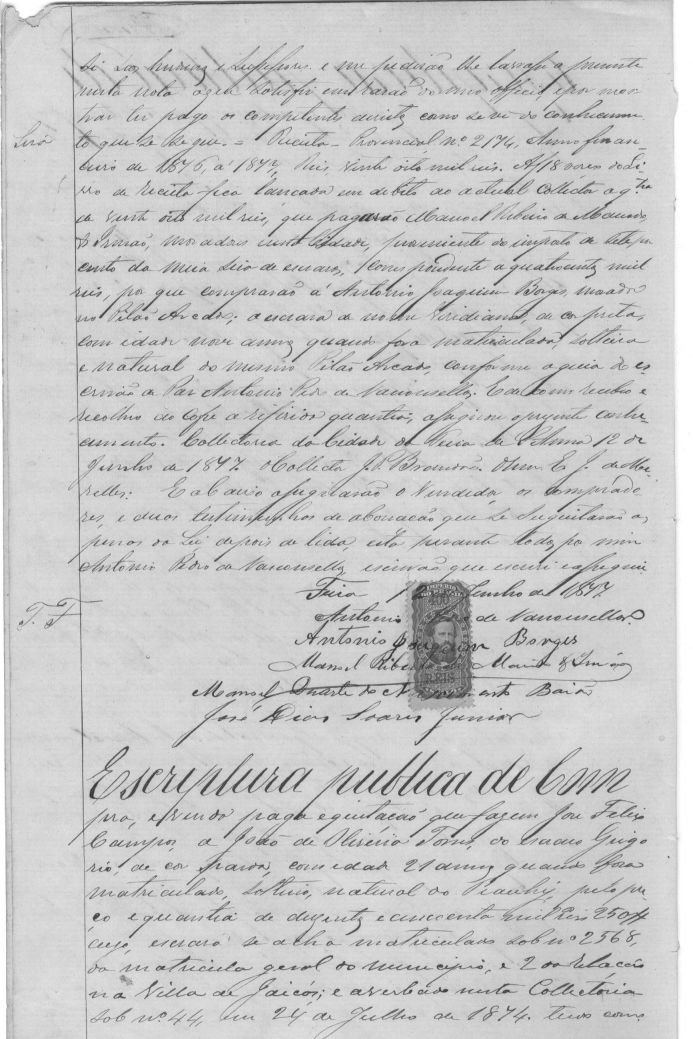 si seus herdeiros e sucessores e me pedirão lhe lavrasse a presente
nesta nota a que satisfiz em razão do meu officio e por mos
trar ter pago os competentes direitos como se ve do conhecimen
Sisa
to que se segue. = Receita Provincial nº 2174, Anno finan
ceiro de 1876, á 1877, Reis, vinte oito mil reis. Af 18 verso do Li
vro de receita fica lançada em debito ao actual Collector a qtia
de vinte oito mil reis, que pagarão Manoel Ribeiro de
& Irmão, moradores nesta Cidade, proveniente do imposto de sete por
cento da meia Sisa de escravos, correspondente a quatrocentos mil
reis, por que comprarão á Antonio Joaquim Borges, morador
no Pilão Arcado; a escrava de nome Viridiana, de cor preta,
com idade nove annos quando fora matriculada, solteira
e natural do mesmo Pilão Arcado, conforme a guia do es
crivão de Paz Antonio Pedro de Vasconsellos. E de como recebeu e
recolheu ao cofre a referida quantia, assignou o presente conhe
cimento. Collectoria da Cidade da Feira de 12 de
Junho de 1877. O Collector J. Brandão. E. J. de Mei
relles: E abaixo assignarão o vendedor os comprado
res, e duas testimunhas de abonação que se sugeitarão as
penas da Lei depois de lida, esta perante todos, por mim
Antonio Pedro de Vasconsellos, escrivão que escrevi e assignei
Feira Junho de 1877.
T. F
Antonio Pedro de Vasconsellos.
Antonio Joaquim Borges
Manoel Ribeiro de & Irmão
Manoel Duarte do Nascimento Baião
José Dias Soares Junior
IMPERIO
REIS
Escriptura publica de Com
pra, e venda paga e quitação que fazem José Felix
Campos, a João de Oliveira Tores, do escravo Grigo
rio, de cor parda, com idade 21 annos quando fora
matriculado, solteiro, natural do Piauhy, pelo pre
ço e quantia de duzentos e cincoenta mil Reis 250$
cujo, escravo se acha matriculado sob nº 2568,
da matricula geral do municipio, e 2 da relação
na Villa de Jaicós; e averbado nesta Collectoria
sob nº 44, em 24 de Julho de 1874. teos como